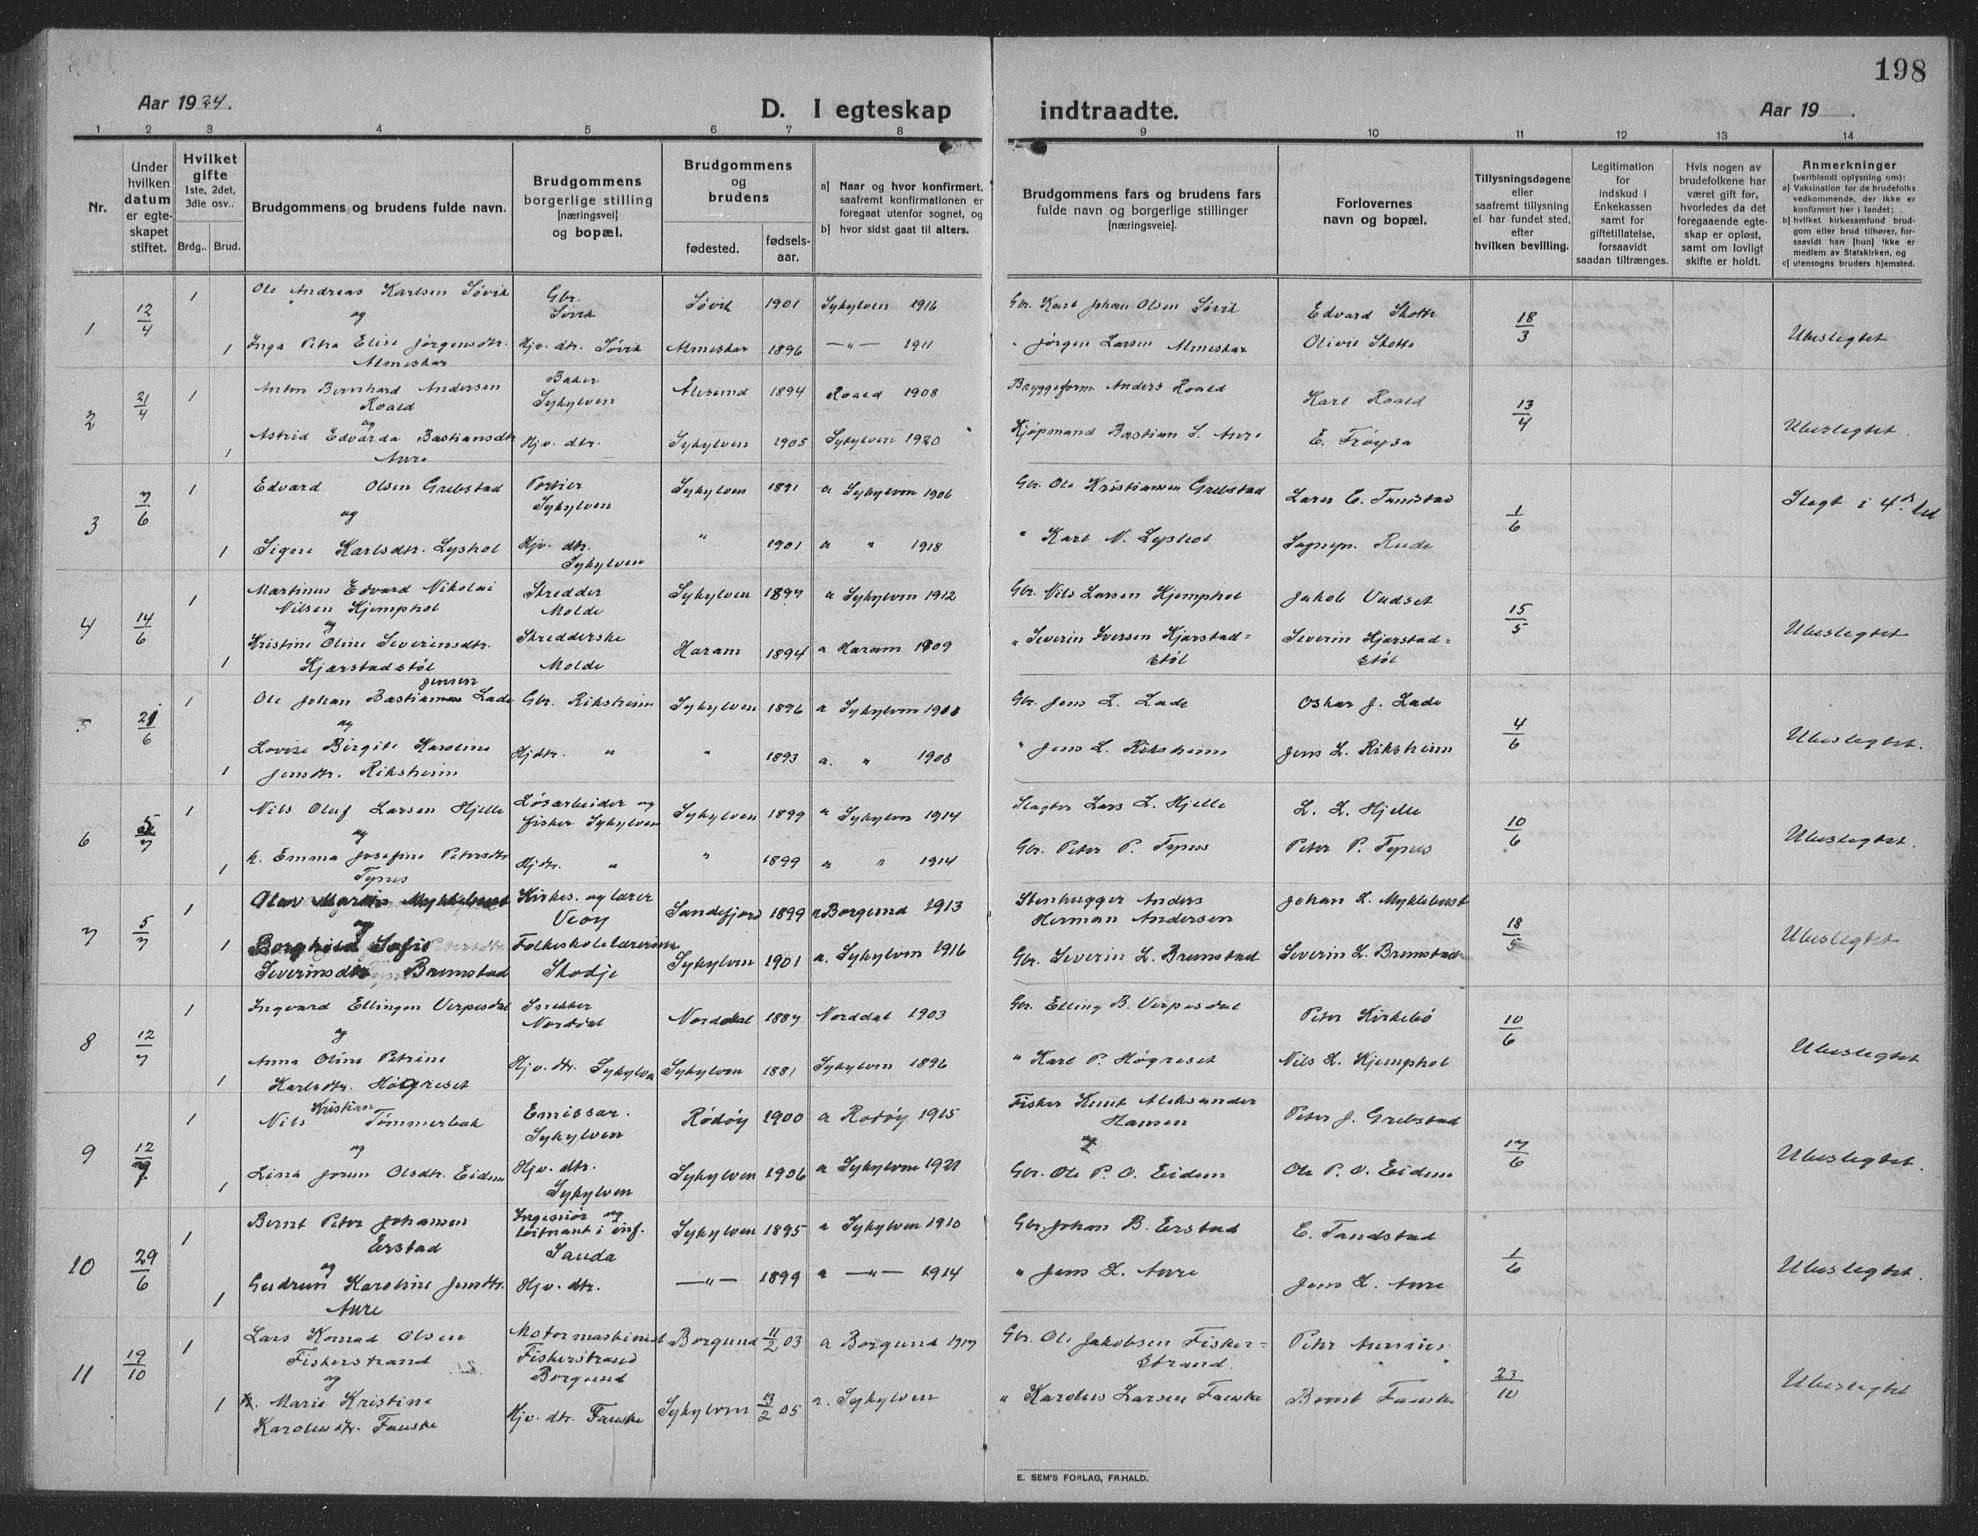 198
Aar 1924.
D. I egteskap indtraadte.
Aar 19
1 2 3 4 5 6 7 8 9 10 11 12 13 14
Nr.
Under hvilken datum er egteskapet stiftet.
Hvilket gifte 1ste, 2det, 3die osv..
Brdg.. Brud.
Brudgommens og brudens fulde navn.
Brudgommens borgerlige stilling [næringsvei] og bopæl.
Brudgommens og brudens
fødested. fødsels-aar.
a] Naar og hvor konfirmert, saafremt konfirmationen er foregaat utenfor sognet, og
b] hvor sidst gaat til alters.
Brudgommens fars og brudens fars fulde navn og borgerlige stillinger [næringsveie].
Forlovernes navn og bopæl.
Tillysningsdagene eller saafremt tillysning ei har fundet sted, efter hvilken bevilling.
Legitimation for indskud i Enkekassen samt for giftetillatelse, forsaavidt saadan tiltrænges.
Hvis nogen av brudefolkene har været gift før, hvorledes da det foregaaende egteskap er opløst, samt om lovligt skifte er holdt.
Anmerkninger
(heriblandt oplysning om):
a] Vaksination for de brudefolks vedkommende, der ikke er konfirmert her i landet;
b] hvilket kirkesamfund brudgom eller brud tilhører, forsaavidt han [hun] ikke er medlem av Statskirken, og
c] utensogns bruders hjemsted.
1 12/4 1 Ole Andreas Karlsen Søvik Gbr. Søvik Søvik 1901 Sykylven 1916 Gbr. Karl Johan Olsen Søvik Edvard Skotte 18/3 Ubeslegtet
og
1 Inga Petra Elise Jørgensdtr. Almeskar Hjv. dtr. Søvik Almeskar 1896 —"— 1911 " Jørgen Larsen Almeskar Olivie Skotte
2 21/4 1 Anton Bernhard Andersen Roald Baker Sykylven Ålesund 1894 Roald 1908 Bryggeform. Anders Roald Karl Roald 13/4 Ubeslegtet.
og
1 Astrid Edvarda Bastiansdtr Aure Hjv. dtr. Sykylven 1905 Sykylven 1920 Kjøpmand Bastian S. Aure E. Frøysa
3 7/6 1 Edvard Olsen Grebstad Portier Sykylven Sykylven 1891 a Sykylven 1906 Gbr. Ole Kristiansen Grebstad Lars E. Tandstad 1/6 Slegt i 4de led
og
1 Signe Karlsdtr. Lyshol Hjv. dtr. Sykylven " 1901 a " 1918 " Karl N. Lyshol Sognepr. Rude
4 14/6 1 Martinus Edvard Nikolai Nilsen Hjemphol Skredder Molde Sykylven 1897 a Sykylven 1912 Gbr. Nils Larsen Hjemphol Jakob Vadset 15/5 Ubeslegtet
og
1 Kristine Oline Severinsdtr. Kjærstadstøl Skredderske Molde Haram 1894 a Haram 1909 " Severin Iversen Kjærstadstøl Severin Kjærstadstøl
5 21/6 1 Ole Johan Bastian Jensen Lade Gbr. Riksheim Sykylven 1896 a Sykylven Gbr. Jens L. Lade Oskar J. Lade 4/6 Ubeslegtet.
og
1 Lovise Birgite Karoline Jensdtr. Riksheim Hjdtr. " " 1893 a. " 1908 " Jens L. Riksheim Jens L. Riksheim
6 5/7 1 Nils Oluf Larsen Hjelle Løsarbeider og fisker Sykylven Sykylven 1899 a Sykylven 1914 Slagter Lars L. Hjelle L. L. Hjelle 10/6 Ubeslegtet.
og
1 k. Emma Josefine Petersdtr Tynes Hjdtr. " " 1899 a " 1914 Gbr. Peter P. Tynes Peter P. Tynes
7 5/7 1 Olav Martin Myklebust Kirkes. og lærer Veøy Sandefjord 1899 a Borgund 1913 Stenhugger Anders Herman Andersen Johan L. Myklebust 18/5 Ubeslegtet
og
1 Borghild Sofie Severinsdtr Brunstad Folkeskolelærerinne Skodje Sykylven 1901 a. Sykylven 1916 Gbr. Severin L. Brunstad Severin L. Brunstad
8 12/7 1 Ingvard Ellingsen Verpesdal Snekker Norddal Norddal 1887 Norddal 1903 Gbr. Elling B. Verpesdal Peter Kirkebø 10/6 Ubeslegtet
og
1 Anna Oline Petrine Karlsdtr. Høgreset Hjv. dtr. Sykylven Sykylven 1881 Sykylven 1896 " Karl P. Høgreset Nils L. Hjemphol
9 12/7 1 Nils Kristian Tømmerbak Emissær. Sykylven Rødøy 1900 a Rødøy 1915 Fisker Knut Aleksander Hansen Peter J. Grebstad 17/6 Ubeslegtet.
og
1 Lina Jorun Olsdtr. Eidem Hjv. dtr. Sykylven Sykylven 1906 a Sykylven 1921 Gbr. Ole P. O. Eidem Ole P. O. Eidem
10 29/6 1 Bernt Peter Johansen Erstad Ingeniør og løitnant i inf. Sauda Sykylven 1895 a Sykylven 1910 Gbr. Johan B. Erstad E. Tandstad 1/6 Ubeslegtet.
og
1 Gudrun Karoline Jensdtr. Aure Hjv. dtr. —"— 1899 a —"— 1914 " Jens L. Aure Jens L. Aure
11 19/10 1 Lars Konrad Olsen Fiskerstrand Motormaskinist Fiskerstrand Borgund Borgund 11/2 03 a Borgund 1917 Gbr. Ole Jakobsen Fiskerstrand Peter Aursnes 23/10 Ubeslegtet
og
1 k. Marie Kristine Karolusdtr. Fauske Hjv. dtr. Fauske Sykylven 13/2 05 a. Sykylven " Karolus Larsen Fauske Bernt Fauske
E. SEM'S FORLAG, FR.HALD.